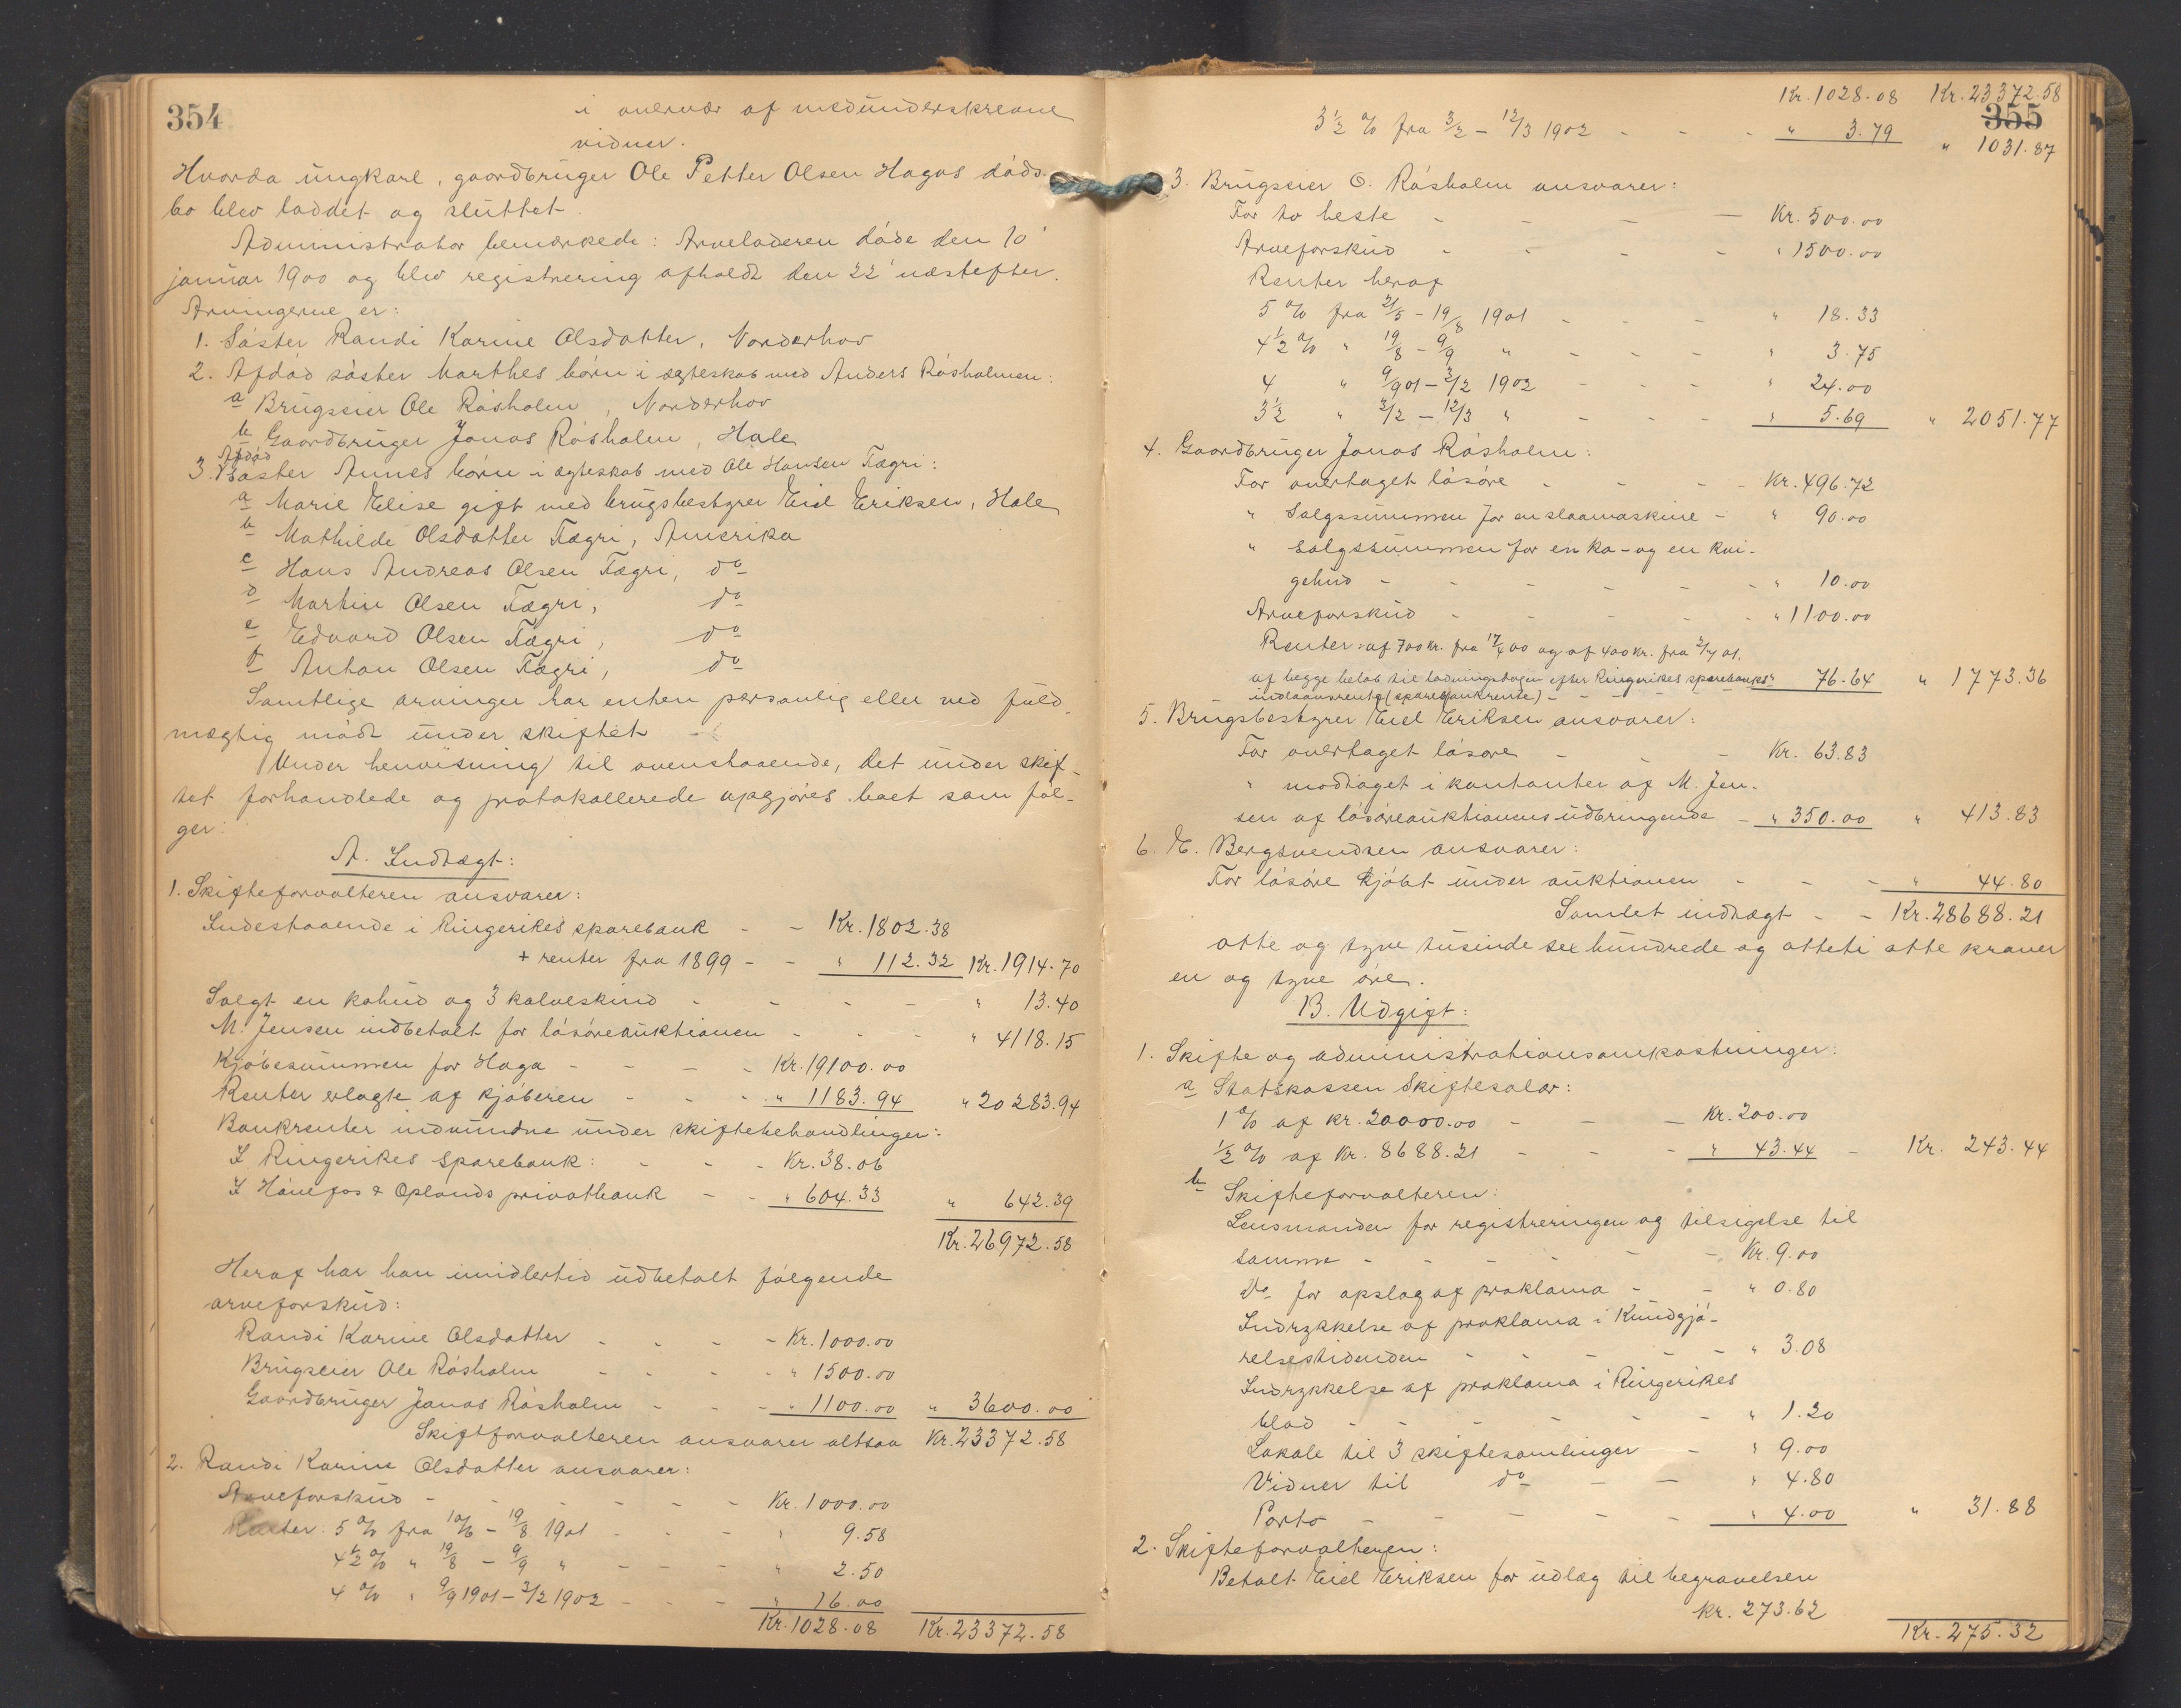 354
i overvær af medunderskrevne
vidner.
Hvorda ungkarl, gaardbruger Ole Petter Olsen Hagas døds-
bo blev loddet og sluttet.
Administrator bemærkede: Arveladeren døde den 10'
januar 1900 og blev registrering afholdt den 22' næstefter.
Arvingerne er:
1. Søster Randi Karine Olsdatter, Norderhov
2. Afdød søster Marthes børn i ægteskab med Anders Røsholmen:
a Brugseier Ole Røsholm, Norderhov
b Gaardbruger Jonas Røsholm, Hole
Afdød
3. Søster Annes børn i ægteskab med Ole Hansen Fægri:
a Marie Elise gift med brugsbestyrer Eiel Eriksen, Hole
b Mathilde Olsdatter Fægri, Amerika
c Hans Andreas Olsen Fægri, do
d Martin Olsen Fægri, do
e Edvard Olsen Fægri, do
f Anton Olsen Fægri, do
Samtlige arvinger har enten personlig eller ved fuld-
mægtig mødt under skiftet -
Under henvisning til ovenstaaende, det under skif-
tet forhandlede og protokollerede opgjøres boet som føl-
ger:
A. Indtægt:
1. Skifteforvalteren ansvarer:
Indestaaende i Ringerikes sparebank - - Kr. 1802.38
+ renter fra 1899 - - " 112.32 Kr. 1914.70
Solgt en kohud og 3 kalveskind - - - - " 13.40
M. Jensen indbetalt for løsøreauktionen - - - " 4118.15
Kjøbesummen for Haga - - - - Kr. 19100.00
Renter erlagte af kjøberen - - - " 1183.94 " 20283.94
Bankrenter indvundne under skiftebehandlingen:
I Ringerikes Sparebank: - - - Kr. 38.06
I Hønefos & Oplands privatbank - - " 604.33 " 642.39
Kr. 26972.58
Heraf har han imidlertid udbetalt følgende
arveforskud:
Randi Karine Olsdatter - - - - Kr. 1000.00
Brugseier Ole Røsholm - - - - " 1500.00
Gaardbruger Jonas Røsholm - - - " 1100.00 " 3600.00
Skiftforvalteren ansvarer altsaa Kr. 23372.58
2. Randi Karine Olsdatter ansvarer:
Arveforskud - - - - - - Kr. 1000.00
Renter: 5 % fra 10/6 - 19/8 1901 - - - " 9.58
4½ % " 19/8 - 9/9 " - - - - " 2.50
4 % " 9/9 1901 - 3/2 1902 - - - " 16.00
Kr. 1028.08 Kr. 23372.58
355
Kr. 1028.08 Kr. 23372.58
3½ % fra 3/2 - 12/3 1902 - - - " 3.79 " 1031.87
3. Brugseier O. Røsholm ansvarer:
For to heste - - - - Kr. 500.00
Arveforskud - - - - " 1500.00
Renter heraf
5 % fra 21/5 - 19/8 1901 - - - " 18.33
4½ % " 19/8 - 9/9 " - - - - " 3.75
4 " 9/9 01 - 3/2 1902 - - - " 24.00
3½ " 3/2 - 12/3 " - - - - " 5.69 " 2051.77
4. Gaardbruger Jonas Røsholm:
For overtaget løsøre - - - - Kr. 496.72
" Salgssummen for en slaamaskine - " 90.00
" Salgssummen for en ko- og en kvi-
gehud - - - - - - " 10.00
Arveforskud - - - - - " 1100.00
Renter: af 700 kr. fra 17/4 00 og af 400 kr. fra 2/4 01.
af begge beløb til lodningsdagen efter Ringerikes sparebanks " 76.64 " 1773.36
indlaansrente (sparebankrente) - - - - - -
5. Brugsbestyrer Eiel Eriksen ansvarer:
For overtaget løsøre - - - Kr. 63.83
" modtaget i kontanter af M. Jen-
sen af løsøreauktionens udbringende - " 350.00 " 413.83
6. E. Bergsvendsen ansvarer:
For løsøre kjøbt under auktionen - - - " 44.80
Samlet indtægt - - Kr. 28688.21
otte og tyve tusinde sex hundrede og otteti otte kroner
en og tyve øre.
B. Udgift:
1. Skifte og administrationsomkostninger:
a Statskassen Skiftesalær:
1 % af kr. 20000.00 - - - Kr. 200.00
½ % af Kr. 8688.21 - - - " 43.44 - Kr. 243.44
b Skifteforvalteren:
Lensmanden for registreringen og tilsigelse til
samme - - - - - - Kr. 9.00
Do for opslag af proklama - - " 0.80
Indrykkelse af proklama i Kundgjø-
relsestidenden - - - - - " 3.08
Indrykkelse af proklama i Ringerikes
blad - - - - - - " 1.20
Lokale til 3 skiftesamlinger - " 9.00
Vidner til do - - " 4.80
Porto - - - - - - " 4.00 " 31.88
2. Skifteforvalteren:
Betalt Eiel Eriksen for udlæg til begravelsen
Kr. 273.62
Kr. 275.32